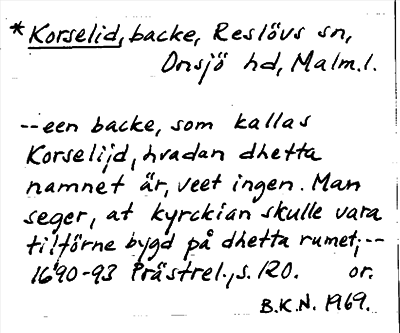 *Korselid, backe, Reslövs sn,
Onsjö hd, Malm.l.
--een backe, som kallas
Korselijd, hvadan dhetta
namnet är, veet ingen. Man
seger, at kyrckian skulle vara
tilförne bygd på dhetta rumet;--
1690-93 Prästrel., s. 120. or.
B.K.N. 1969.